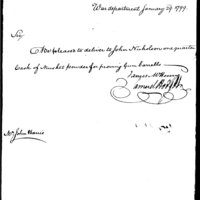 War department January 29. 1799.
Sir
Be pleased to deliver to John Nicholson one quarter
Cask of Musket powder for proving Gun barrells
James McHenry
Samuel Hodgdon
Mr John Harris